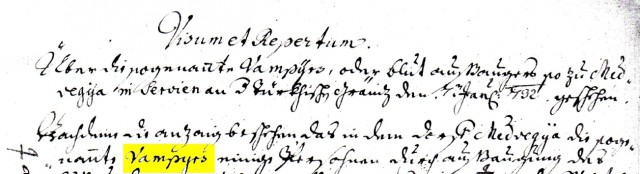 Visum et Repertum.
Über die sogenannte Vampyrs, oder blut aussaugers so zu Med-
vegija in Servien an d Türkhischen Gränitz den 7. Jan: 1732. geschehen.
Nachdeme die anzaig beschehen das in dem dorff Medvegija die soge-
nannte Vampyrs einige Persohnen durch aussaugung das